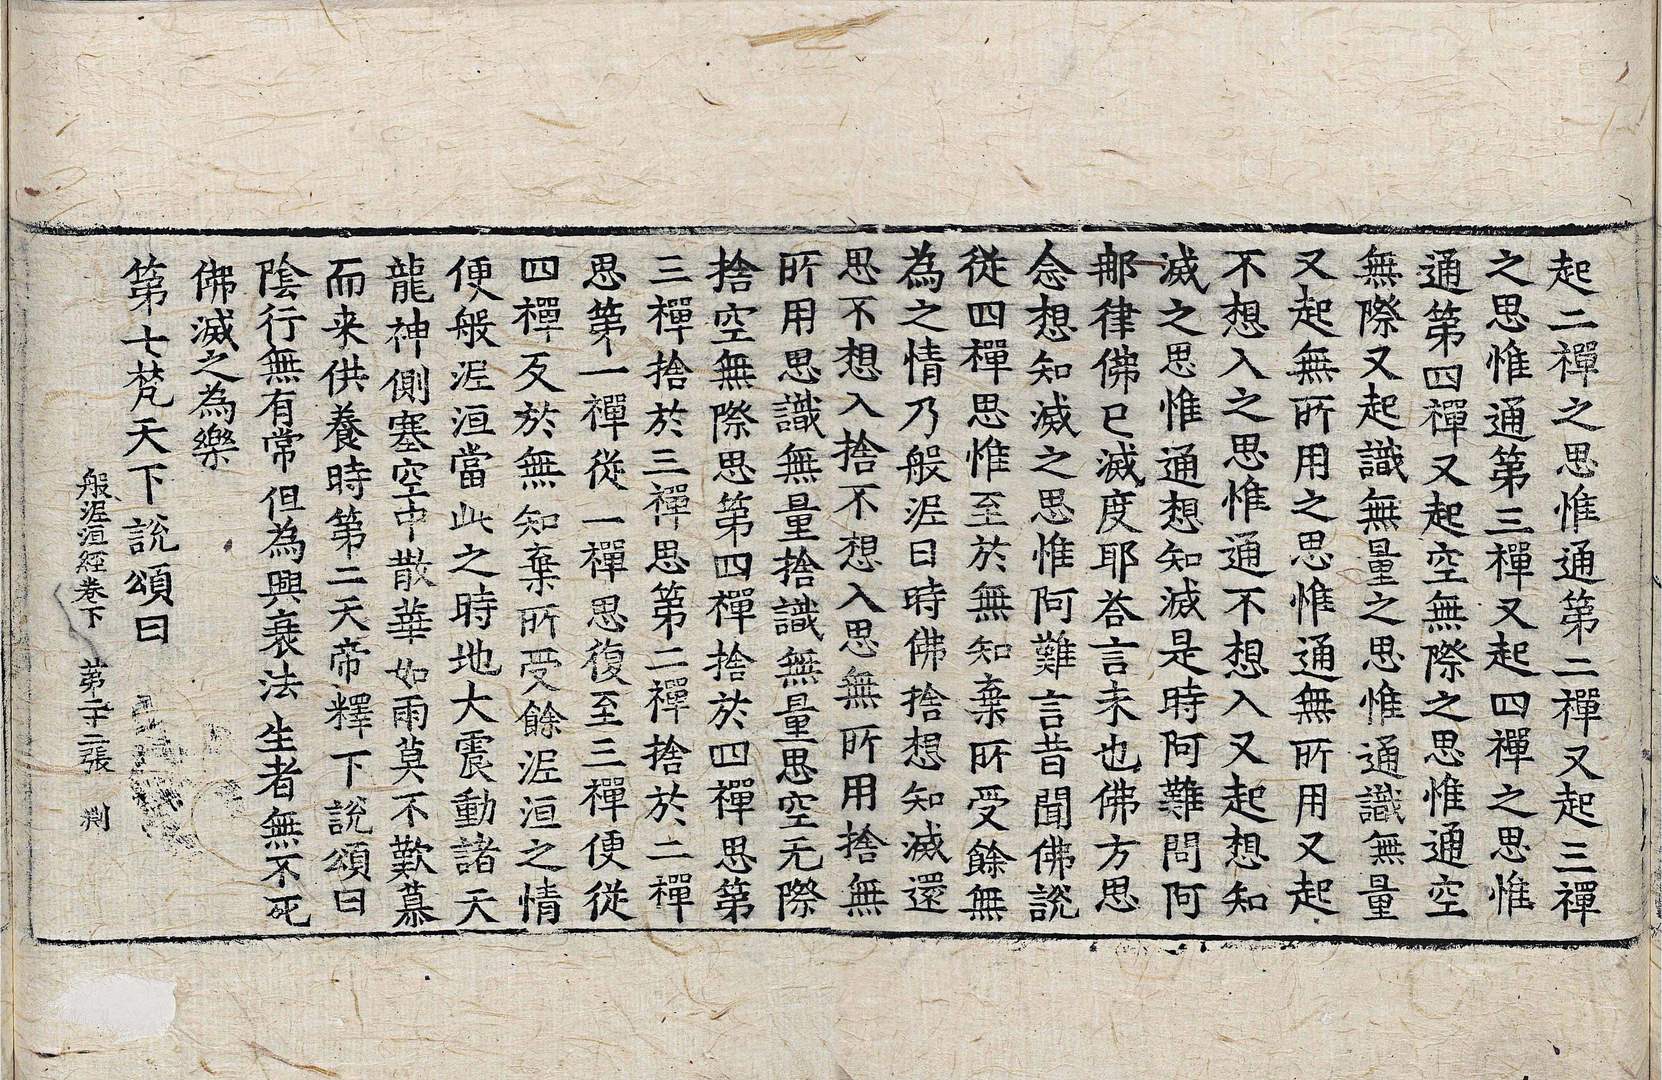 起二禪之思惟通第二禪又起三禪
之思惟通第三禪又起四禪之思惟
通第四禪又起空無際之思惟通空
無際又起識無量之思惟通識無量
又起無所用之思惟通無所用又起
不想入之思惟通不想入又起想知
滅之思惟通想知滅是時阿難問阿
那律佛已滅度耶荅言未也佛方思
念想知滅之思惟阿難言昔聞佛說
從四禪思惟至於無知棄所受餘無
為之情乃般泥曰時佛捨想知滅還
思不想入捨不想入思無所用捨無
所用思識無量捨識無量思空无際
捨空無際思第四禪捨於四禪思第
三禪捨於三禪思第二禪捨於二禪
思第一禪從一禪思復至三禪便從
四禪反於無知棄所受餘泥洹之情
便般泥洹當此之時地大震動諸天
龍神側塞空中散華如雨莫不歎慕
而来供養時第二天帝釋下說頌曰
陰行無有常 但為興衰法 生者無不死
佛滅之為樂
第七梵天下說頌曰
般泥洹經卷下 第二十二張